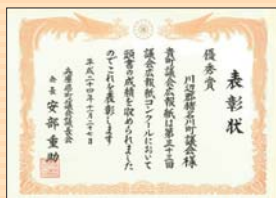 表彰状
優秀賞
川辺郡猪名川町議会様
貴町議会広報紙は第三十三回
議会広報紙コンクールにおいて
頭書の成績を収められました
のでこれを表彰します
平成二十四年十一月二十七日
兵庫県町議会議長会
会長 安部重助